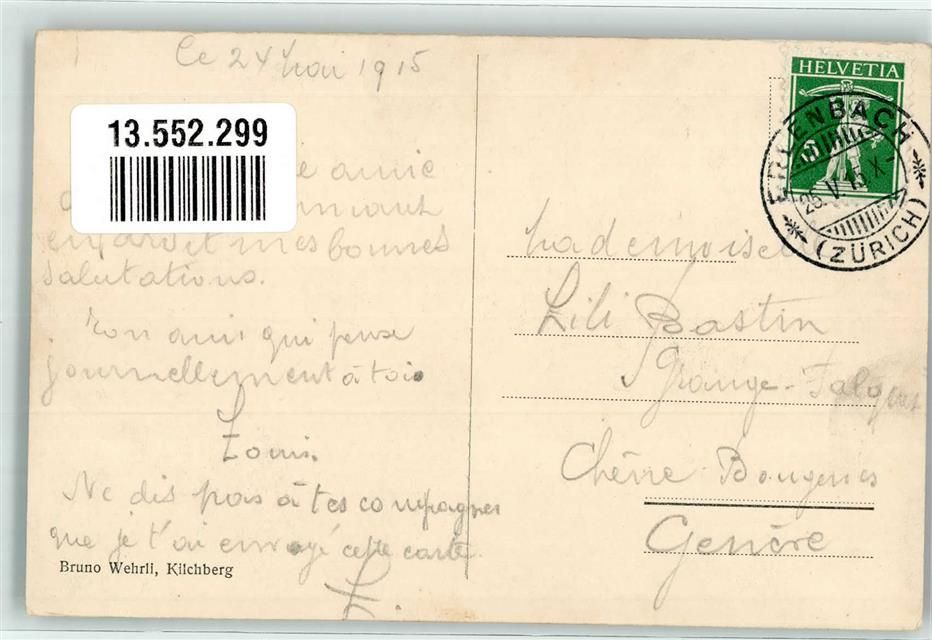 Ce 24 Mai 1915
13.552.299
amie
en droit mes bonnes
salutations.
Ton ami qui pense
journellement à toi.
Louis.
Ne dis pas à tes compagnes
que je t'ai envoyé cette carte.
L.
Bruno Wehrli, Kilchberg
HELVETIA
5
ERLENBACH
25.V.15.X-
(ZÜRICH)
Mademoiselle
Lili Bastin
Grange-Falquet
Chêne Bougeries
Genève